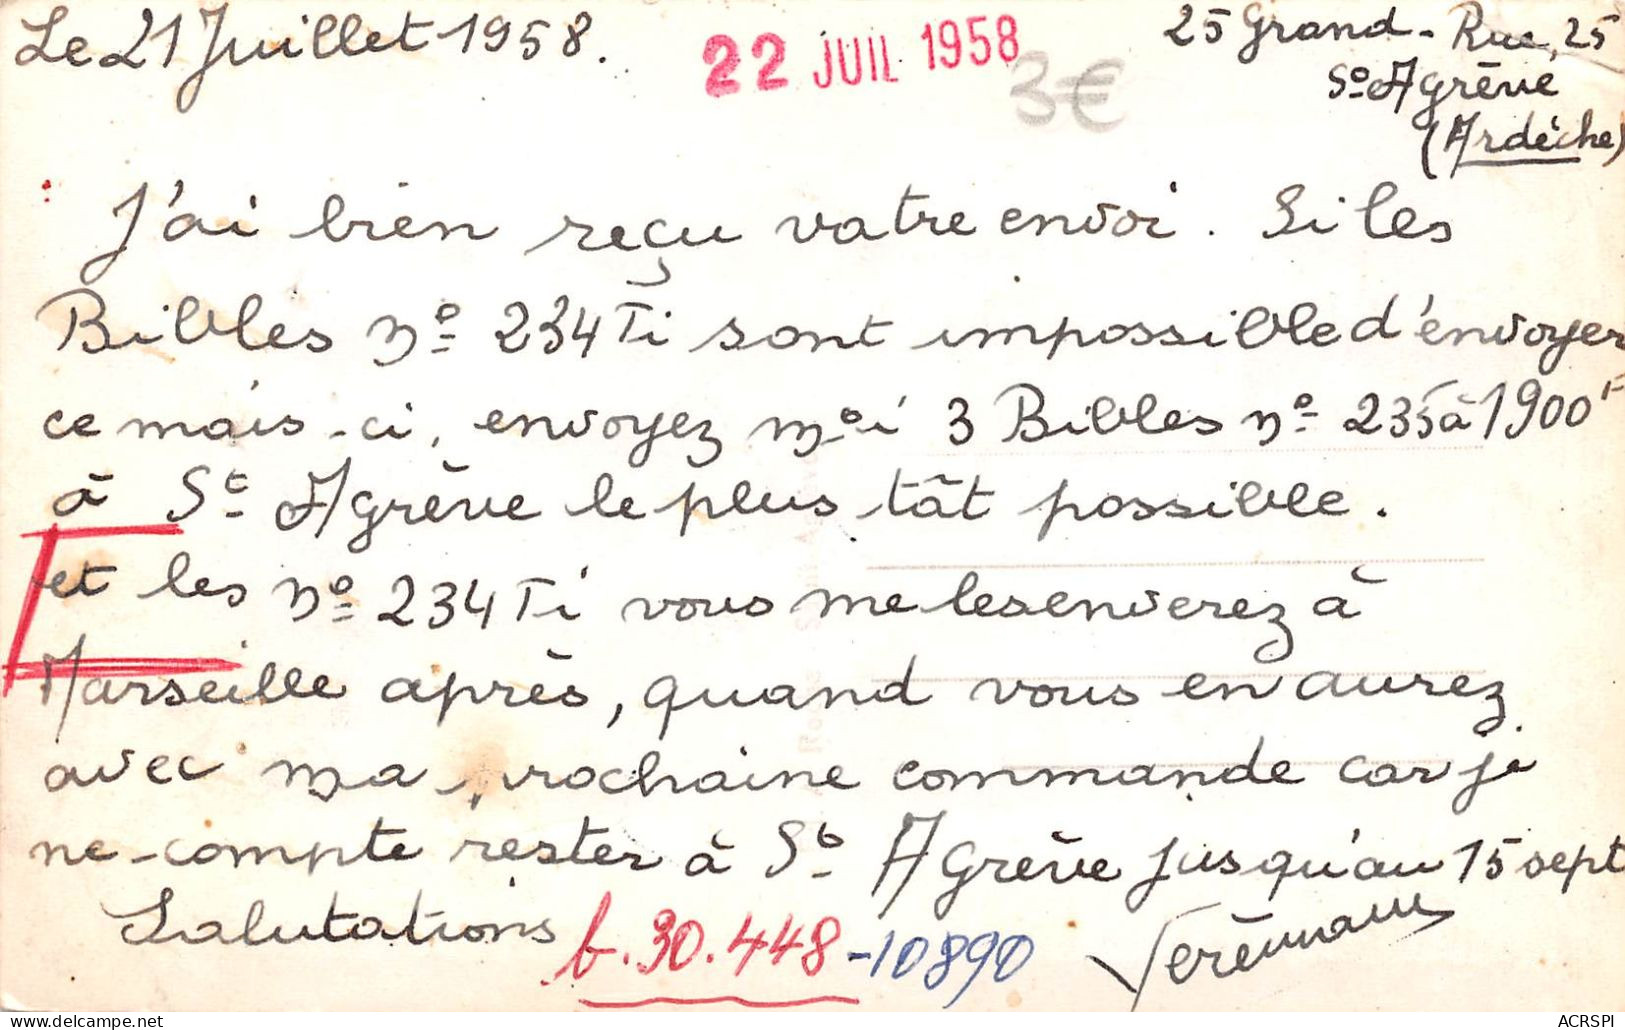 Le 21 Juillet 1958.
22 JUIL 1958
3€
25 Grand-Rue, 25
St Agrève
(Ardèche)
J'ai bien reçu votre envoi. Si les
Bibles No 234 Ti sont impossible d'envoyer
ce mois-ci, envoyez moi 3 Bibles No 235 à 1900F
à St Agrève le plus tôt possible.
et les No 234 Ti vous me les enverez à
Marseille après, quand vous en aurez
avec ma prochaine commande car je
ne compte rester à St Agrève jusqu'au 15 sept
Salutations
f.30.448-10890
ACRSPI